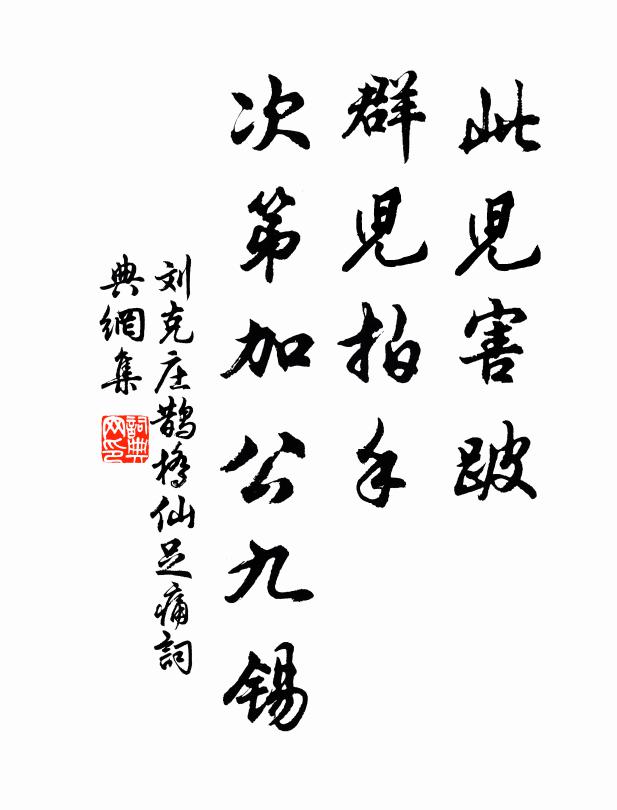 此児害跛
群児拍手
次第加公九锡
刘克庄鹊橋仙足痛詞
典網集
詞典
网印